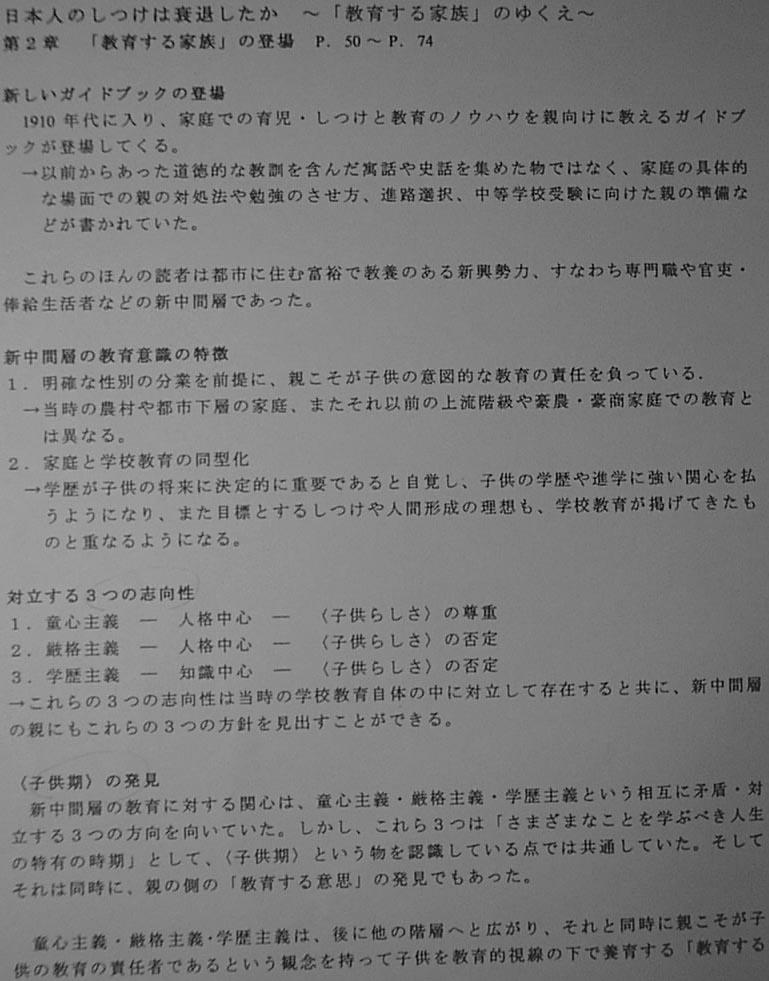 日本人のしつけは衰退したか　～「教育する家族」のゆくえ～
第２章　「教育する家族」の登場　P．50～P．74
新しいガイドブックの登場
1910 年代に入り、家庭での育児・しつけと教育のノウハウを親向けに教えるガイドブ
ックが登場してくる。
→以前からあった道徳的な教訓を含んだ寓話や史話を集めた物ではなく、家庭の具体的
な場面での親の対処法や勉強のさせ方、進路選択、中等学校受験に向けた親の準備な
どが書かれていた。
これらのほんの読者は都市に住む富裕で教養のある新興勢力、すなわち専門職や官吏・
俸給生活者などの新中間層であった。
新中間層の教育意識の特徴
１．明確な性別の分業を前提に、親こそが子供の意図的な教育の責任を負っている．
→当時の農村や都市下層の家庭、またそれ以前の上流階級や豪農・豪商家庭での教育と
は異なる。
２．家庭と学校教育の同型化
→学歴が子供の将来に決定的に重要であると自覚し、子供の学歴や進学に強い関心を払
うようになり、また目標とするしつけや人間形成の理想も、学校教育が掲げてきたも
のと重なるようになる。
対立する３つの志向性
１．童心主義　―　人格中心　―　〈子供らしさ〉の尊重
２．厳格主義　―　人格中心　―　〈子供らしさ〉の否定
３．学歴主義　―　知識中心　―　〈子供らしさ〉の否定
→これらの３つの志向性は当時の学校教育自体の中に対立して存在すると共に、新中間層
の親にもこれらの３つの方針を見出すことができる。
〈子供期〉の発見
新中間層の教育に対する関心は、童心主義・厳格主義・学歴主義という相互に矛盾・対
立する３つの方向を向いていた。しかし、これら３つは「さまざまなことを学ぶべき人生
の特有の時期」として、〈子供期〉という物を認識している点では共通していた。そして
それは同時に、親の側の「教育する意思」の発見でもあった。
童心主義・厳格主義・学歴主義は、後に他の階層へと広がり、それと同時に親こそが子
供の教育の責任者であるという観念を持って子供を教育的視線の下で養育する「教育する